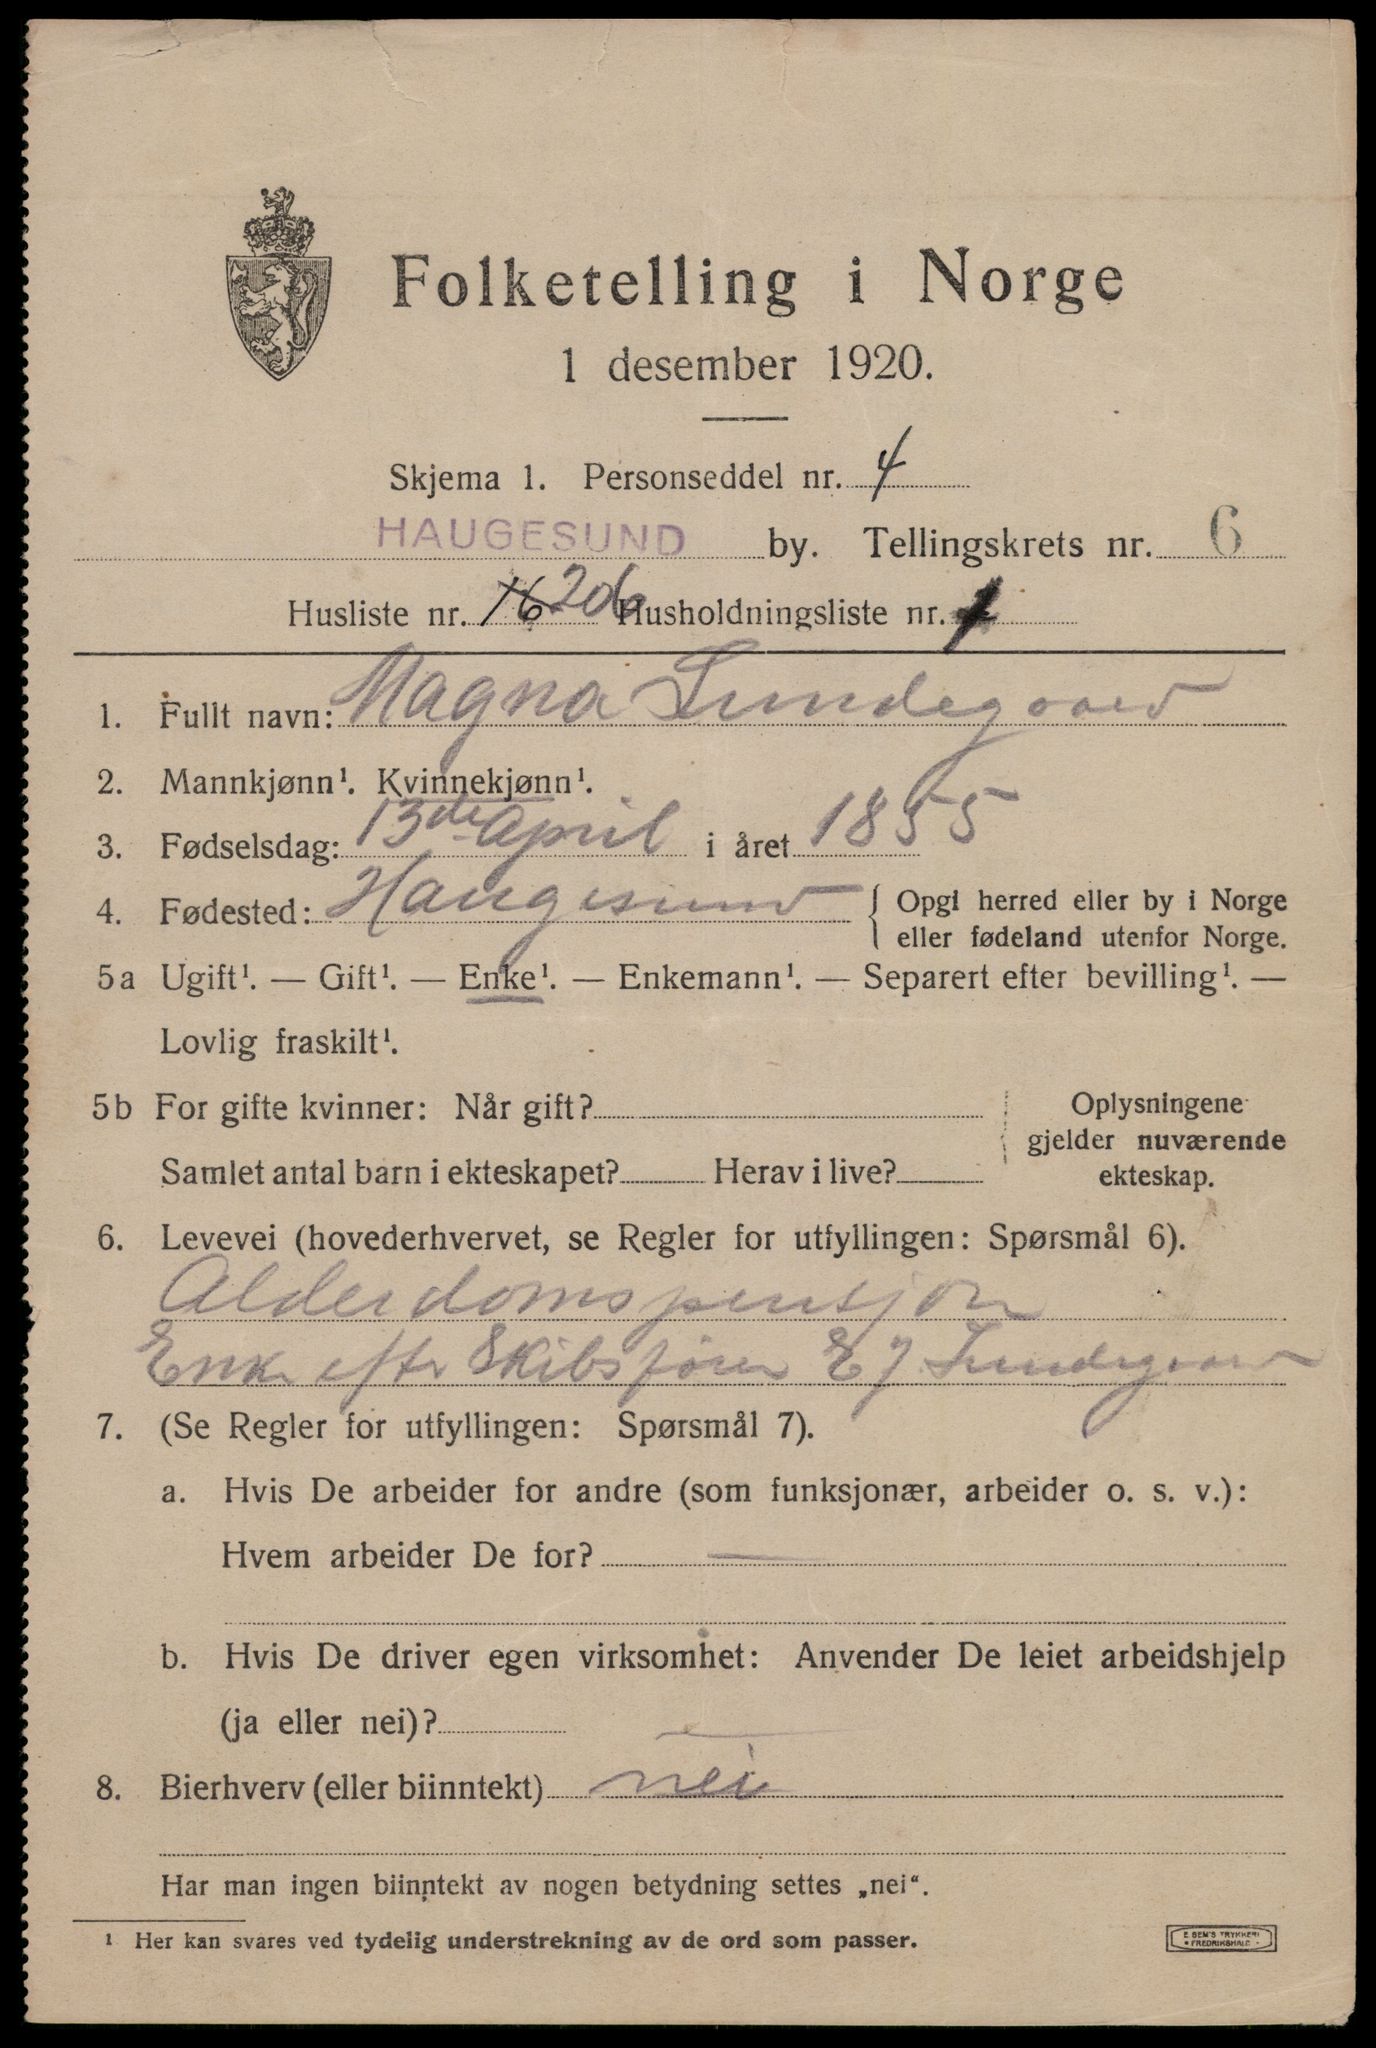 Folketelling i Norge
1 desember 1920.
Skjema 1. Personseddel nr. 4
HAUGESUND by. Tellingskrets nr. 6
Husliste nr. 16 206 Husholdningsliste nr. 1
1. Fullt navn: Magna Lundegaard
2. Mannkjønn¹. Kvinnekjønn¹.
3. Fødselsdag: 13de April i året 1855
4. Fødested: Haugesund { Opgi herred eller by i Norge
eller fødeland utenfor Norge.
5a Ugift¹. — Gift¹. — Enke¹. — Enkemann¹. — Separert efter bevilling¹. —
Lovlig fraskilt¹.
5b For gifte kvinner: Når gift? Oplysningene
gjelder nuværende
Samlet antal barn i ekteskapet? Herav i live? ekteskap.
6. Levevei (hovederhvervet, se Regler for utfyllingen: Spørsmål 6).
Alderdomspensjon
Enke efter Skibsfører E J Lundegaard
7. (Se Regler for utfyllingen: Spørsmål 7).
a. Hvis De arbeider for andre (som funksjonær, arbeider o. s. v.):
Hvem arbeider De for? —
b. Hvis De driver egen virksomhet: Anvender De leiet arbeidshjelp
(ja eller nei)? —
8. Bierhverv (eller biinntekt) nei
Har man ingen biinntekt av nogen betydning settes „nei“.
¹ Her kan svares ved tydelig understrekning av de ord som passer.
E. SEM'S TRYKKERI
• FREDRIKSHALD •